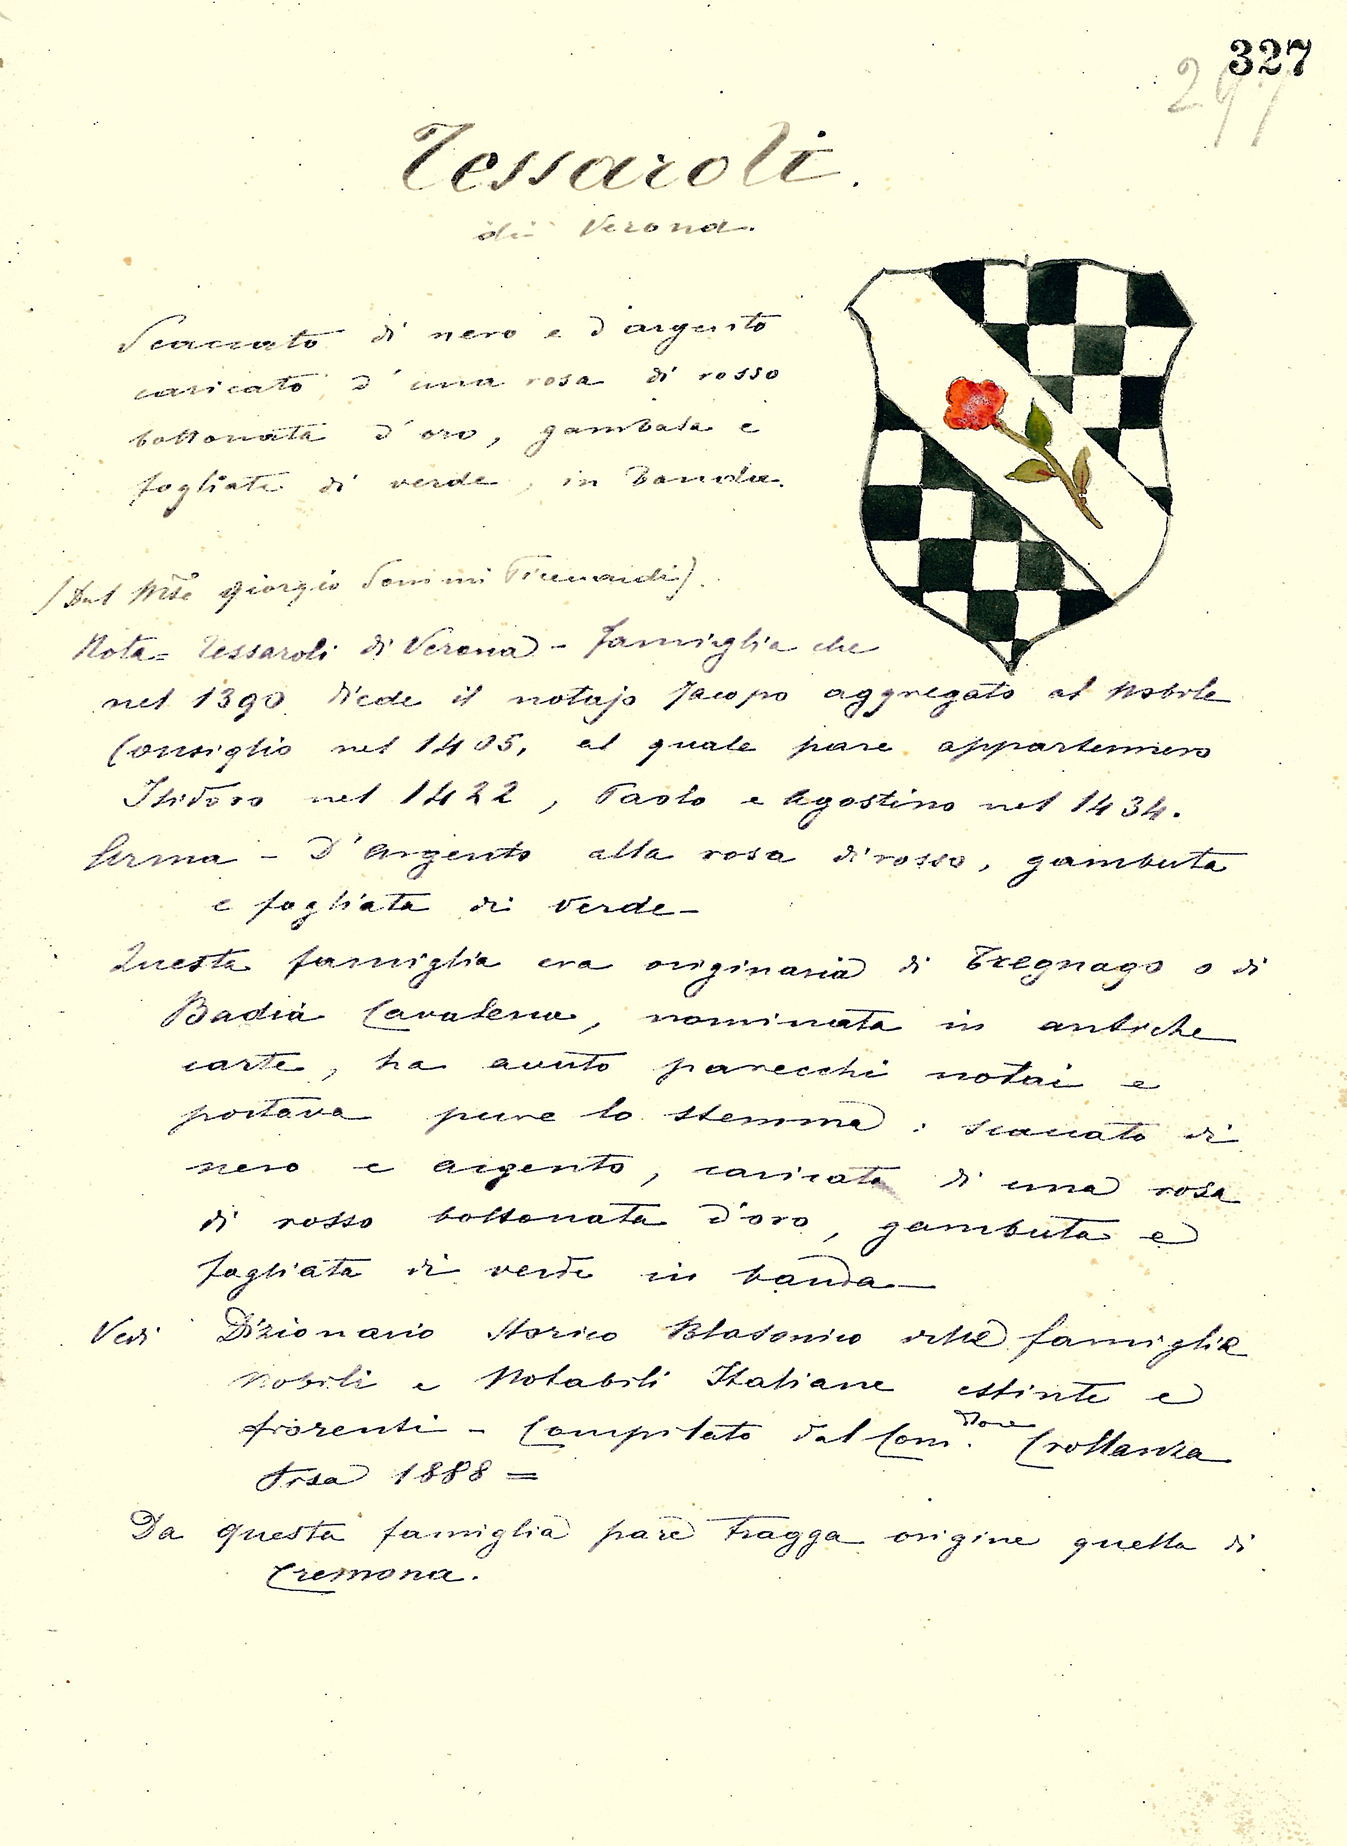 327
297
Tessaroli.
di Verona.
Scaccato di nero e d'argento
caricato d'una rosa di rosso
bottonata d'oro, gambuta e
fogliata di verde, in banda.
(Dal M.se Giorgio Sommi Picenardi).
Nota = Tessaroli di Verona - famiglia che
nel 1390 diede il notajo Jacopo aggregato al Nobile
Consiglio nel 1405, al quale pare appartennero
Isidoro nel 1422, Paolo e Agostino nel 1434.
Arma - D'argento alla rosa di rosso, gambuta
e fogliata di verde -
Questa famiglia era originaria di Tregnago o di
Badia Cavalena, nominata in antiche
carte, ha avuto parecchi notai e
portava pure lo stemma: scaccato di
nero e argento, caricata di una rosa
di rosso bottonata d'oro, gambuta e
fogliata di verde in banda -
Vedi Dizionario Storico Blasonico delle famiglie
nobili e Notabili Italiane estinte e
fiorenti - Compilato dal Com.dore Crollanza
Pisa 1888 =
Da questa famiglia pare tragga origine quella di
Cremona.